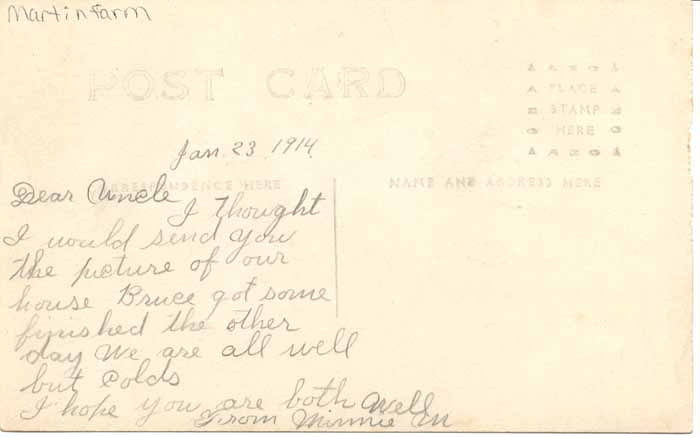 Martin farm
POST CARD
PLACE
STAMP
HERE
Jan. 23 1914
CORRESPONDENCE HERE
NAME AND ADDRESS HERE
Dear Uncle
I thought
I would send you
the picture of our
house Bruce got some
finished the other
day We are all well
but Colds
I hope you are both well
From Minnie M